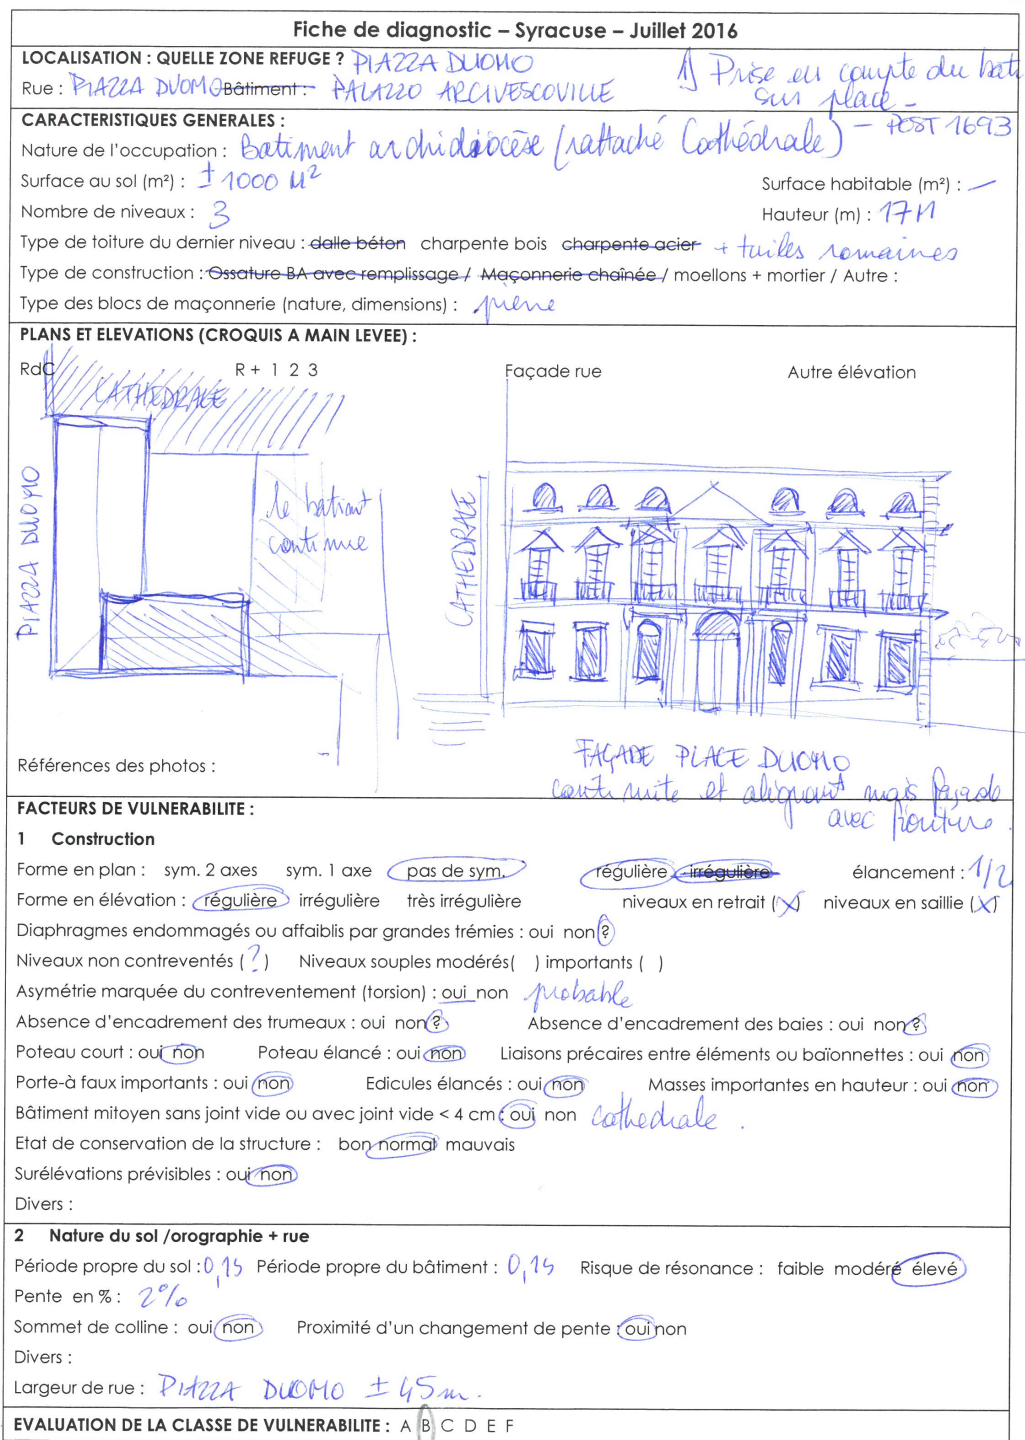 Fiche de diagnostic – Syracuse – Juillet 2016
LOCALISATION : QUELLE ZONE REFUGE ? PIAZZA DUOMO
1) Prise en compte du bati
sur place -
Rue : PIAZZA DUOMO Bâtiment : PALAZZO ARCIVESCOVILLE
CARACTERISTIQUES GENERALES :
Nature de l'occupation : Batiment archidiocèse (rattaché Cathédrale) - POST 1693
Surface au sol (m²) : ± 1000 M² Surface habitable (m²) : -
Nombre de niveaux : 3 Hauteur (m) : 17 M
Type de toiture du dernier niveau : dalle béton charpente bois charpente acier + tuiles romaines
Type de construction : Ossature BA avec remplissage / Maçonnerie chaînée / moellons + mortier / Autre :
Type des blocs de maçonnerie (nature, dimensions) : pierre
PLANS ET ELEVATIONS (CROQUIS A MAIN LEVEE) :
RdC R + 1 2 3 Façade rue Autre élévation
CATHEDRALE
PIAZZA DUOMO
le batiment
continue
CATHEDRALE
FAÇADE PLACE DUOMO
Références des photos :
continuite et alignant mais façade
avec
FACTEURS DE VULNERABILITE :
1 Construction
Forme en plan : sym. 2 axes sym. 1 axe pas de sym. régulière irrégulière élancement : 1/2
Forme en élévation : régulière irrégulière très irrégulière niveaux en retrait (X) niveaux en saillie (X)
Diaphragmes endommagés ou affaiblis par grandes trémies : oui non ?
Niveaux non contreventés ( ? ) Niveaux souples modérés( ) importants ( )
Asymétrie marquée du contreventement (torsion) : oui non probable
Absence d'encadrement des trumeaux : oui non ? Absence d'encadrement des baies : oui non ?
Poteau court : oui non Poteau élancé : oui non Liaisons précaires entre éléments ou baïonnettes : oui non
Porte-à faux importants : oui non Edicules élancés : oui non Masses importantes en hauteur : oui non
Bâtiment mitoyen sans joint vide ou avec joint vide < 4 cm : oui non cathedrale .
Etat de conservation de la structure : bon normal mauvais
Surélévations prévisibles : oui non
Divers :
2 Nature du sol /orographie + rue
Période propre du sol : 0,15 Période propre du bâtiment : 0,15 Risque de résonance : faible modéré élevé
Pente en % : 2%
Sommet de colline : oui non Proximité d'un changement de pente : oui non
Divers :
Largeur de rue : PIAZZA DUOMO ± 45m.
EVALUATION DE LA CLASSE DE VULNERABILITE : A B C D E F